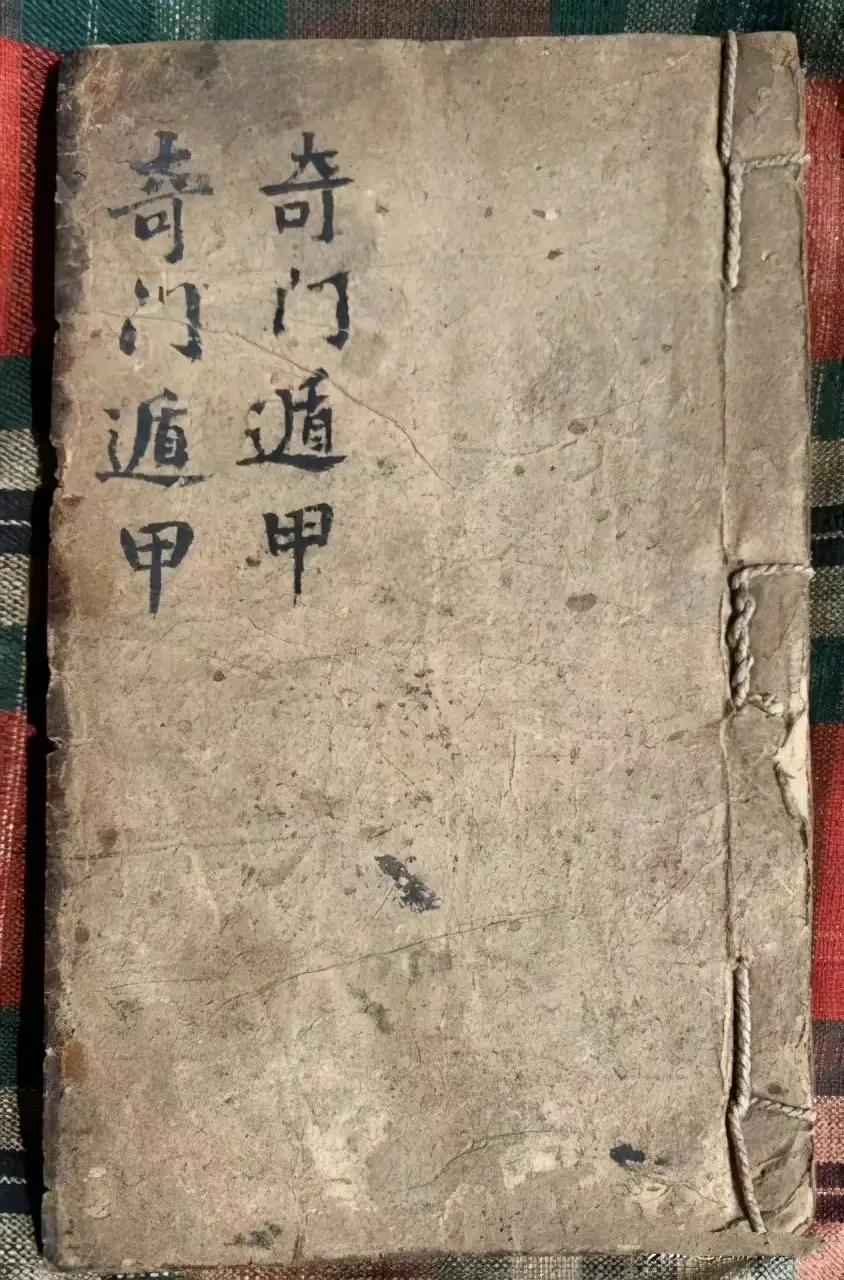 奇门遁甲
奇门遁甲